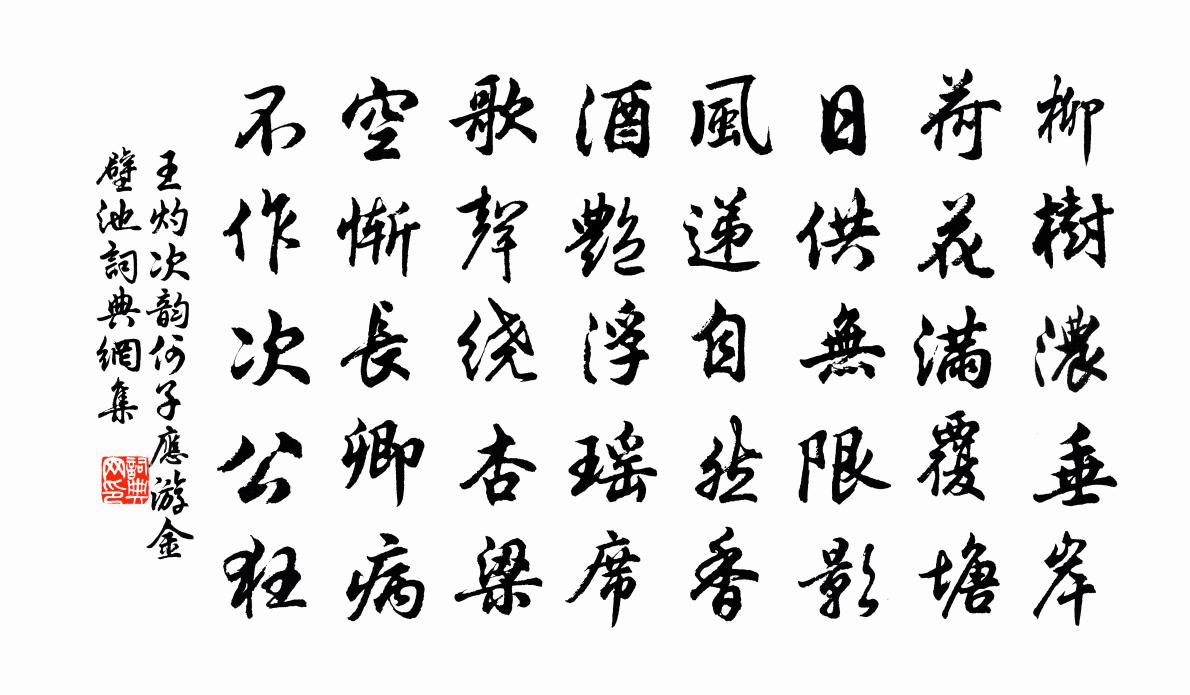 柳樹濃垂岸
荷花滿覆塘
日供無限影
風递自然香
酒艷浮瑶席
歌聲绕杏梁
空慚長卿病
不作次公狂
王灼次韵何子應游金
壁池詞典網集
詞典
网印